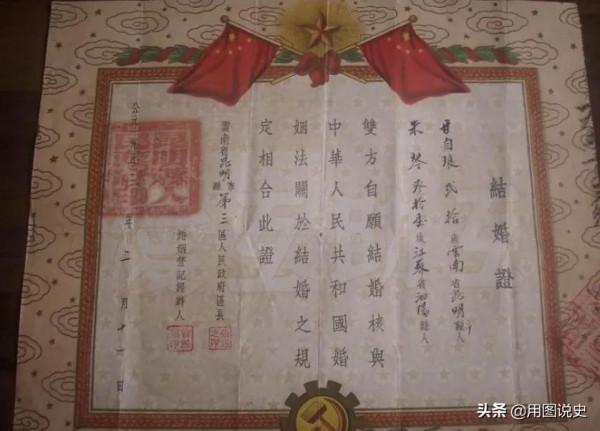 結婚證
甘自琅 弍拾 歲雲南省昆明縣人
朱琴 歲江蘇省泗陽縣人
雙方自願結婚核與
中華人民共和國婚
姻法關於結婚之規
定相合此證
雲南省昆明市第三區人民政府區長
婚姻登記經辦人
公元一九五 年二月十一日
头条 @用图说史